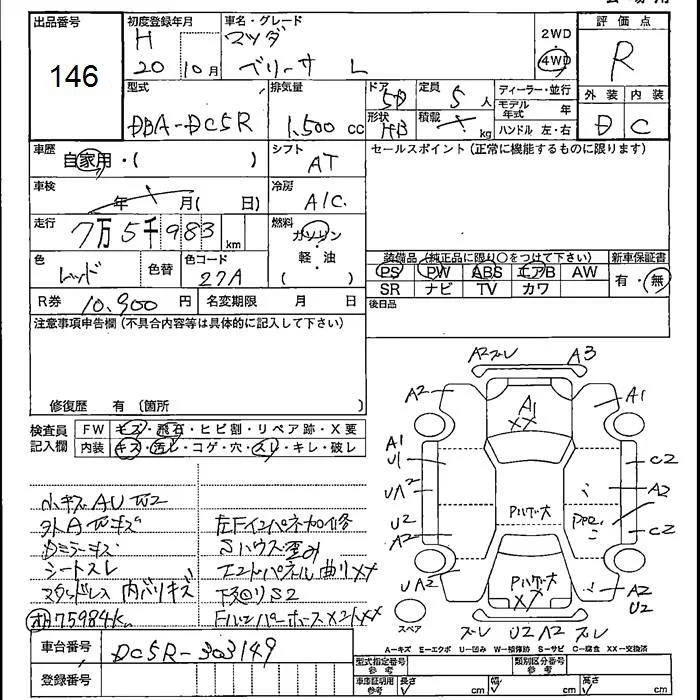 出品番号
146
初度登録年月
H
20 10月
車名・グレード
マツダ
ベリーサ L
2WD
4WD
評価点
R
外装 内装
D C
型式
DBA-DC5R
排気量
1,500 cc
ドア
5D
形状
HB
定員
5 人
積載
kg
ディーラー・並行
モデル年式 年
ハンドル 左・右
車歴
自家用・( )
シフト
AT
セールスポイント(正常に機能するものに限ります)
車検
年 月( 日)
冷房
A/C.
走行
7万5千983 km
燃料
ガソリン
軽・油
( )
色
レッド
色替
色コード
27A
装備品(純正品に限り○をつけて下さい)
新車保証書
PS PW ABS エアB AW
SR ナビ TV カワ
有・無
R券 10,900 円
名変期限 月 日
後日品
注意事項申告欄(不具合内容等は具体的に記入して下さい)
修復歴 有(箇所 )
検査員記入欄
FW キズ・飛石・ヒビ割・リペア跡・X要
内装 キズ・汚レ・コゲ・穴・スレ・キレ・破レ
小キズAU W2
外A Wキズ
Dミラーキズ
シートスレ
スタッドレス 内バリキズ
75984k
左Fインパネ加修
Sハウス歪み
エンドパネル曲りXX
下廻りS2
A2スレ A3
A2 A1
A1
XX
A1
U1
C2
UA2
A2
U2
A2
C2
Pハルテ大
Pハルテ大
XX
UA2
A2
U2
スペア
スレ U2 A2 スレ
A-キズ E-エクボ U-凹み W-補修跡 S-サビ C-腐食 XX-交換済
車台番号
DC5R-303149
登録番号
型式指定番号 参考
類別区分番号 参考
車庫証明用 参考
長さ cm
幅 cm
高さ cm